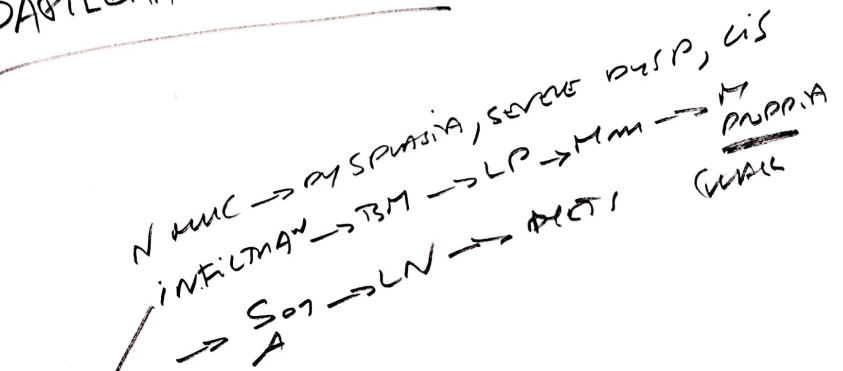 N MUC → DYSPLASIA, SEVERE DYSP, CIS
INFILTRAN → BM → LP → MM → M
PROPRIA
→ Son → LN → METS
A